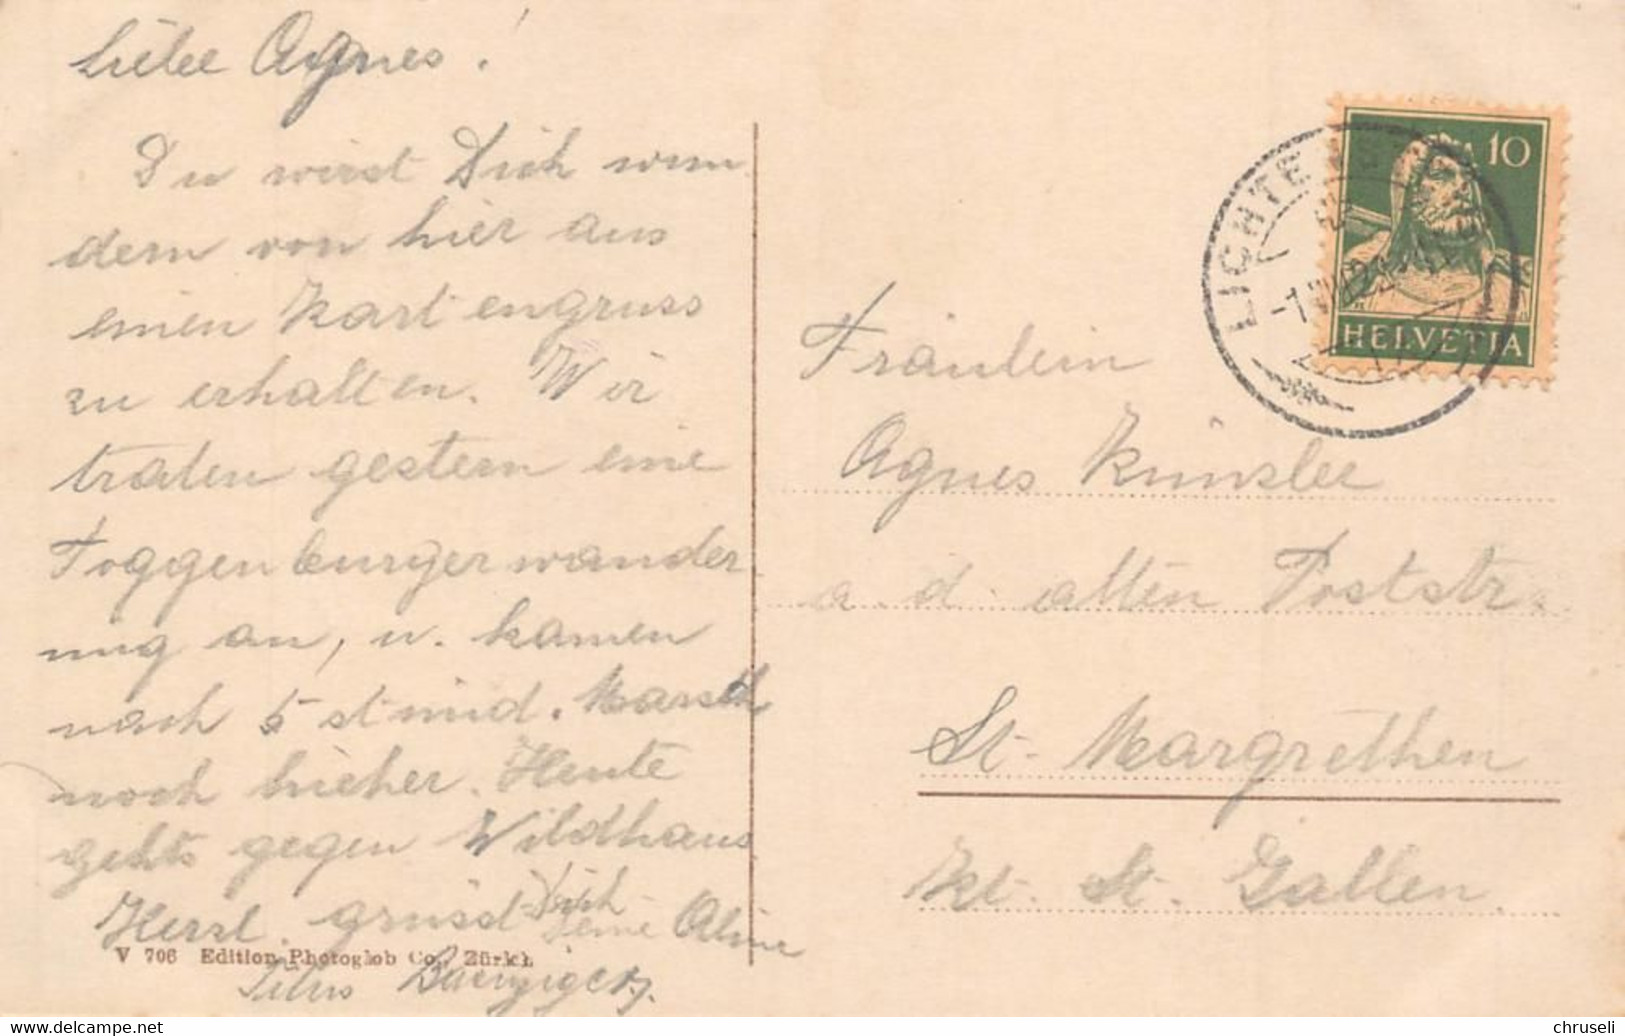 Liebe Agnes!
Du wirst Dich wun
dern von hier aus
einen Kartengruss
zu erhalten. Wir
traten gestern eine
Toggenburgerwander
ung an, u. kamen
nach 5 stünd. Marsch
noch hieher. Heute
gehts gegen Wildhaus
Herzl. grüsst Dich
Deine Aline
V 706 Edition Photoglob Co., Zürich
10
HELVETIA
Fräulein
Agnes
a. d. alten Poststr.
St. Margrethen
Kt. St. Gallen.
chruseli